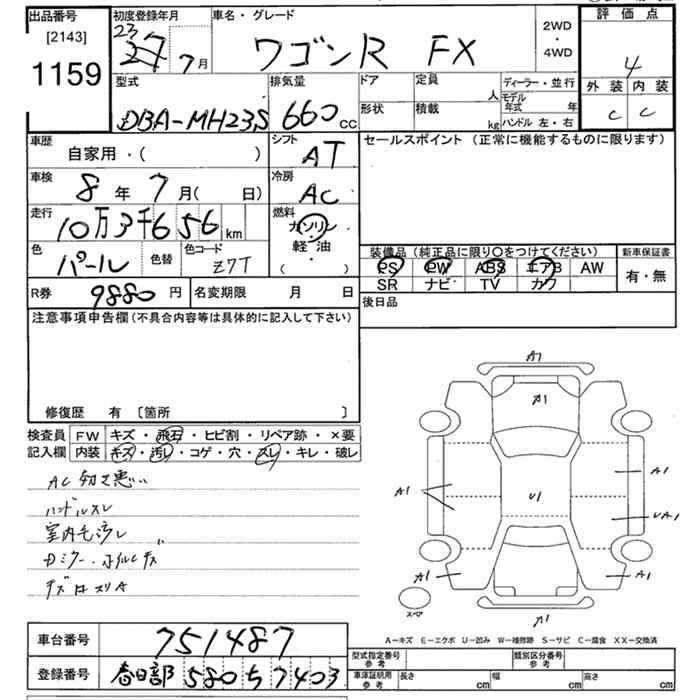 出品番号 初度登録年月 車名・グレード 評価点
[2143] 23 年 7月 ワゴンR FX 2WD・4WD 4
1159
型式 排気量 ドア 定員 人 ディーラー・並行 外装 内装
DBA-MH23S 660 CC 形状 積載 kg モデル年式 年 ハンドル 左・右 C C
車歴 自家用・( ) シフト AT セールスポイント (正常に機能するものに限ります)
車検 8年 7月( 日) 冷房 AC
走行 10万3千656 km 燃料 ガソリン・軽油・( )
色 パール 色替 色コード Z7T
装備品 (純正品に限り○をつけてください) 新車保証書
PS PW ABS エアB AW 有・無
SR ナビ TV カワ
R券 9880 円 名変期限 月 日 後日品
注意事項申告欄 (不具合内容等は具体的に記入して下さい)
修復歴 有 [箇所 ]
検査員 FW キズ・飛石・ヒビ割・リペア跡・×要
記入欄 内装 キズ・汚レ・コゲ・穴・スレ・キレ・破レ
AC 効き悪い
ハンドルスレ
室内毛汚レ
A1
A1
A1
A1
U1
UA1
A1
A1
スペア
A1
A-キズ E-エクボ U-凹み W-補修跡 S-サビ C-腐食 XX-交換済
車台番号 751487 型式指定番号 参考 類別区分番号 参考
登録番号 春日部 580 ち 7403 車庫証明用 参考 長さ cm 幅 cm 高さ cm